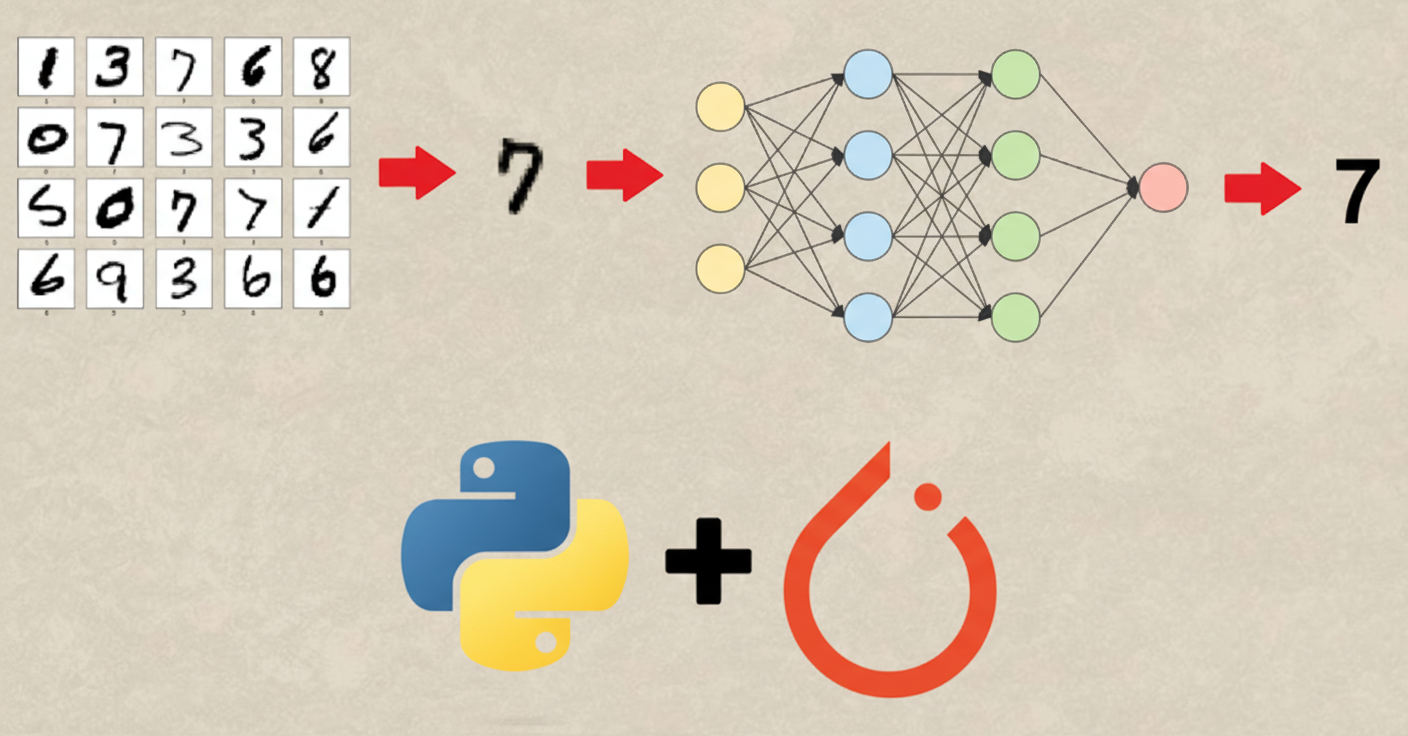 1 3 7 6 8
0 7 3 3 6
5 0 7 7 1
6 9 3 6 6
7
7